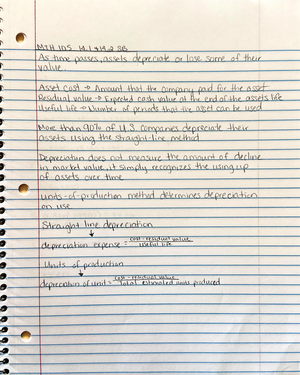 MATH 105 14.1 & 14.2 SB
As time passes, assets depreciate or lose some of their
value.
Asset cost → Amount that the company paid for the asset
Residual value → Expected cash value at the end of the assets life
Useful life → Number of periods that the asset can be used
More than 90% of U.S. companies depreciate their
assets using the straight-line method
Depreciation does not measure the amount of decline
in market value, it simply recognizes the using up
of assets over time.
Units-of-production method determines depreciation
on use
Straight line depreciation
↓
depreciation expense = cost - residual value
useful life
Units of production
↓
depreciation of unit = cost - residual value
Total estimated units produced